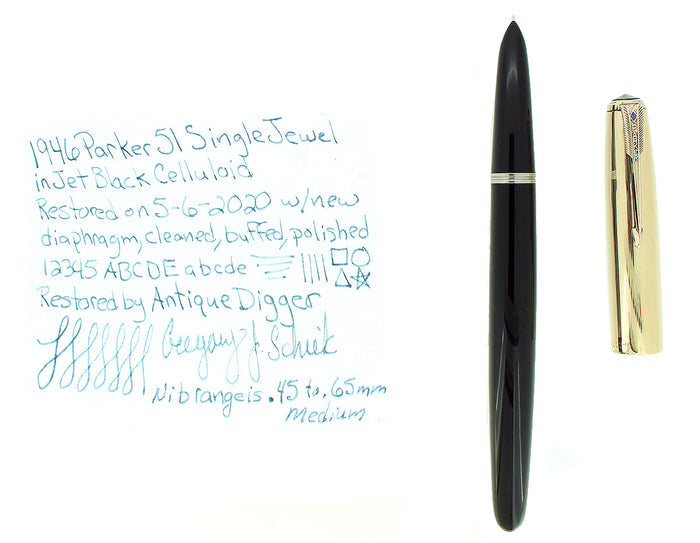 1946 Parker 51 Single Jewel
in Jet Black Celluloid
Restored on 5-6-2020 w/new
diaphragm, cleaned, buffed, polished
12345 ABCDE abcde
Restored by Antique Digger
Gregory J. Schiek
Nib range is .45 to .65mm
Medium